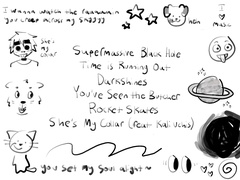 I wanna watch the
you creep across my
She's
my
collar
nan
I
music
Supermassive Black Hole
Time is Running Out
Darkshines
You've Seen the Butcher
Rocket Skates
She's My Collar (feat Kali Uchis)
you set my soul alight~